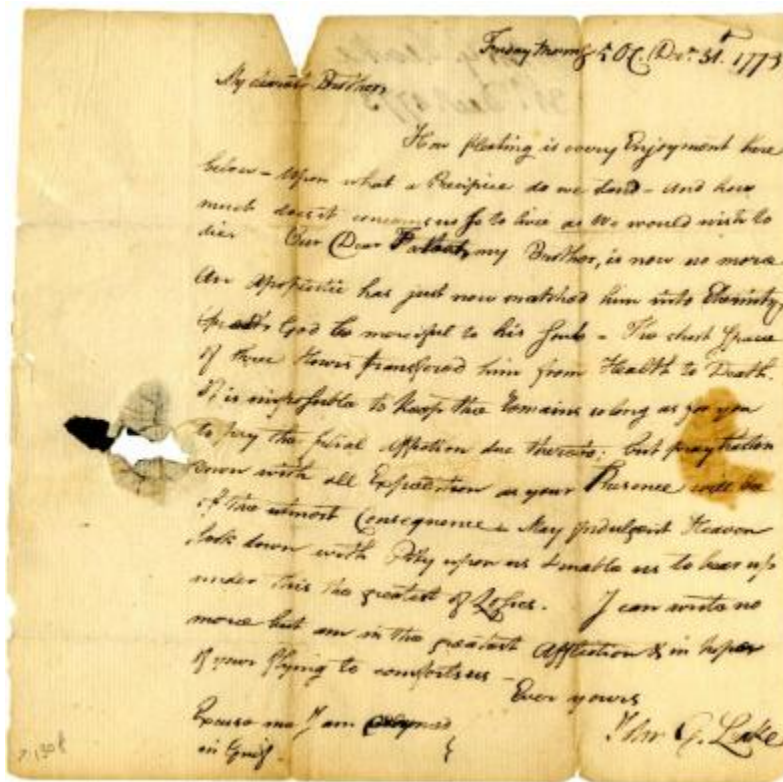 Friday Morng 5 OC. Decr 31st 1773
My dearest Brother,
How fleeting is every Enjoyment here
below – Upon what a Precipice do we stand – and how
much does it concern us so to live as we would wish to
die. Our Dear Father, my Brother, is now no more
An Apoplectic has just now snatched him into Eternity,
God be merciful to his Soul – The short Space
of three Hours transfered him from Health to Death.
It is impossible to keep the Remains so long as for you
to pay the filial Affection due thereto; but pray hasten
down with all Expedition as your Presence will be
of the utmost Consequence – May Indulgent Heaven
look down with Pity upon us & enable us to bear up
under this the greatest of Losses. I can write no
more but am in the greatest Affliction & in hopes
of your flying to comfort us –
Ever yours
Excuse me I am
in Grief. John G. Leake